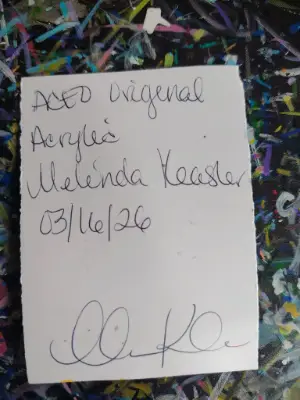 ACEO Origenal
Acrylic
Melinda Keasler
03/16/26